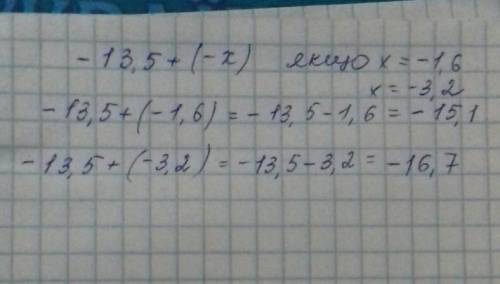 -13,5+(-x) якщо x=-1,6
x=-3,2
-13,5+(-1,6)=-13,5-1,6=-15,1
-13,5+(-3,2)=-13,5-3,2=-16,7